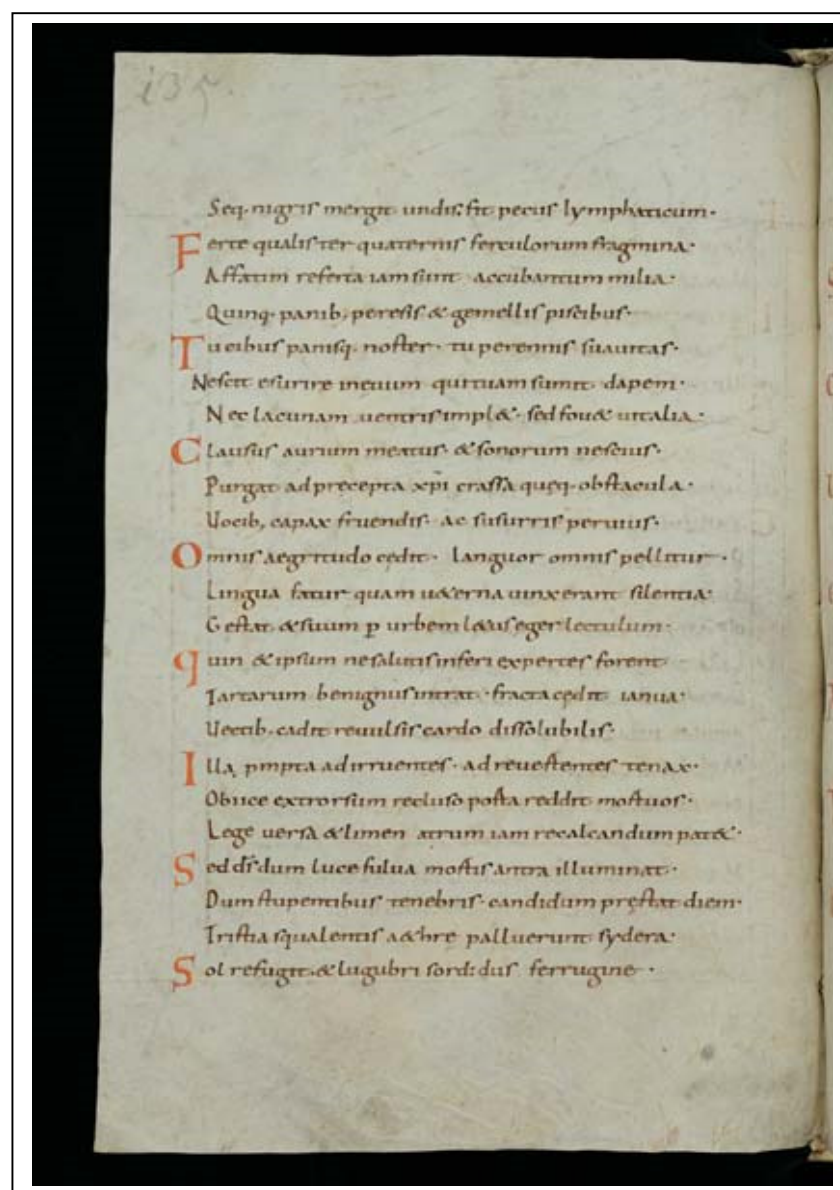 i35.
Seq. nigris mergit undis; fit pecus lymphaticum.
Ferte qualis ter quaternis ferculorum fragmina.
Affatim referta iam sunt accubantum milia.
Quinq. panib; peresis & gemellis piscibus.
Tu cibus panisq. noster. tu perennis suauitas.
Nescit esurire ineuum qui tuam sumit dapem.
Nec lacunam uentris impl&. sed fou& uitalia.
Clausus aurium meatus. & sonorum nescius.
Purgat ad pręcepta xp̄i crassa queq. obstacula.
Uocib; capax fruendis. ac susurris peruius.
Omnis aegritudo cędit. languor omnis pellitur.
Lingua fatur quam u&erna uinxerant silentia.
Gestat & suum p urbem l&us eger lectulum.
quin & ipsum ne salutis inferi expertes forent
Tartarum benignus intrat. fracta cędit ianua.
Uectib; cadit reuulsis cardo dissolubilis.
Illa pmpta ad irruentes. ad reuertentes tenax.
Obiice extrorsum recluso porta reddit mortuos.
Lege uersa & limen atrum iam recalcandum pat&.
Sed ds̄ dum luce fulua mortis antra illuminat.
Dum stupentibus tenebris. candidum pręstat diem.
Tristia squalentis a&hre palluerunt sydera.
Sol refugit. & lugubri sordidus ferrugine.